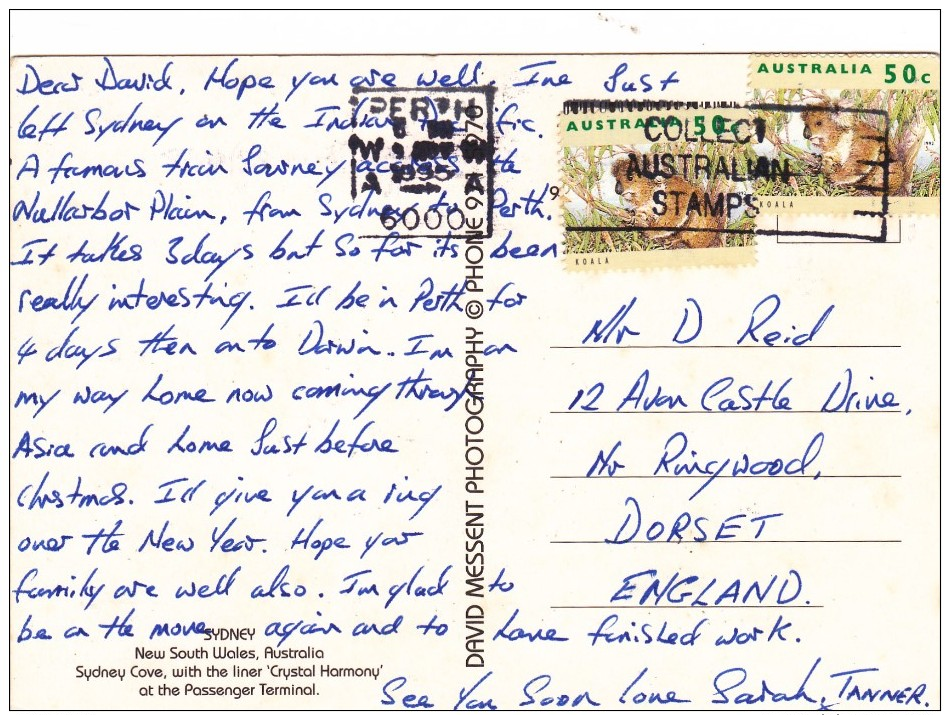 Dear David, Hope you are well. Ive Just
left Sydney on the Indian Pacific.
A famous train Journey across the
Nullarbor Plain, from Sydney to Perth.
It takes 3 days but So far its been
really interesting. I'll be in Perth for
4 days then onto Darwin. I'm on
my way home now coming through
Asia and home Just before
Christmas. I'll give you a ring
over the New Year. Hope your
family are well also. I'm glad to
be on the move again and to have finished work.
See You Soon Love Sarah. TANNER.
SYDNEY
New South Wales, Australia
Sydney Cove, with the liner 'Crystal Harmony'
at the Passenger Terminal.
DAVID MESSENT PHOTOGRAPHY © PHONE 9
PERTH
1995
W A
6000
COLLECT
AUSTRALIAN
STAMPS
AUSTRALIA 50c
KOALA
AUSTRALIA 50c
KOALA
Mr D Reid
12 Avon Castle Drive,
Nr Ringwood,
DORSET
ENGLAND.